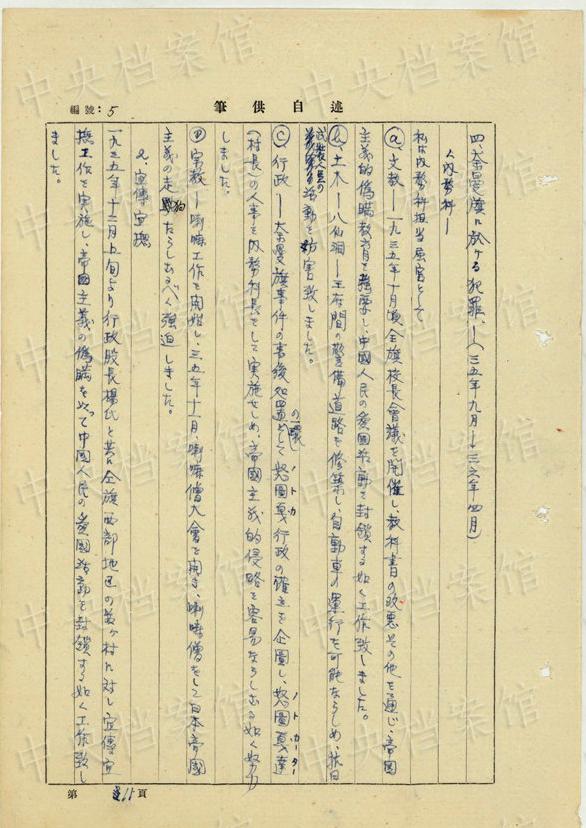 筆供自述
編號:5
四、奈曼旗に於ける犯罪、ー(三五年九月ー三六年四月)
1、内務科ー
私は内務科担当属官として
(a)文教ー一九三五年十月頃全旗校長會議を開催し、教科書の改悪その他を通じ、帝國
主義的偽瞞教育を強要し、中國人民の愛國活動を封鎖する如く工作致しました。
(b)土木ー八仙洞ー王府間の警備道路を修築し、自動車の運行を可能ならしめ、抗日
武裝人員の活動を妨害致しました。
(C)行政ー奈曼旗事件の事後処置の一環として努圖克行政の確立を企圖し、努圖克達
ノトカ
ノトカーター
(村長)の人事を内務科長をして実施せしめ、帝國主義的侵略を容易ならしむる如く努力
しました。
(D)宗教ー喇嘛工作を開始し、三五年十一月喇嘛僧大會を開き、喇嘛僧をして日本帝國
主義の走狗たらしむるべく強迫しました。
2、宣傳宣撫
一九三五年十二月上旬より行政股長楊氏と共に全旗西部地区の數ヶ村に対し宣傳宣
撫工作を実施し、帝國主義の偽瞞を以って中國人民の愛國活動を封鎖する如く工作致し
ました。
第 115 頁
中央档案馆